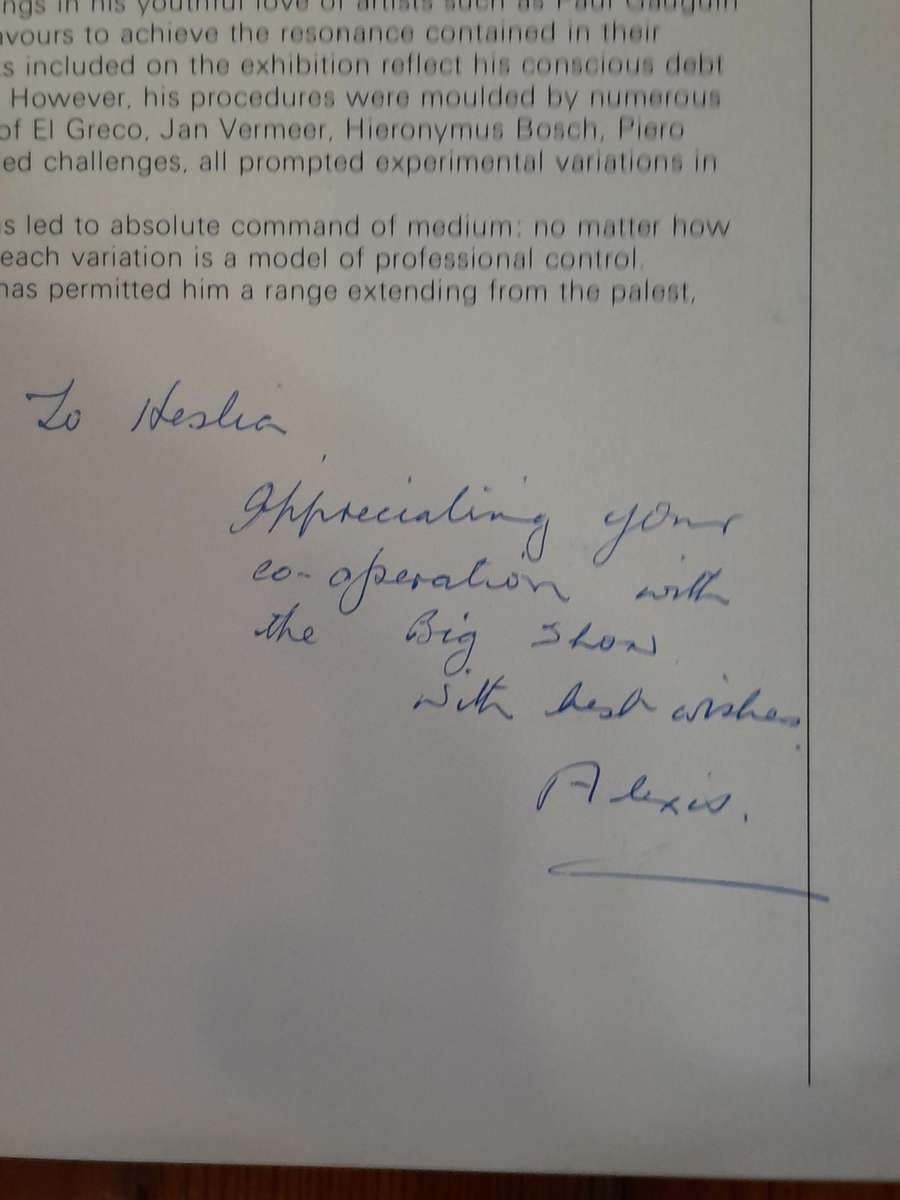 ngs in his youthful love of artists such as Paul Gauguin
avours to achieve the resonance contained in their
s included on the exhibition reflect his conscious debt
However, his procedures were moulded by numerous
of El Greco, Jan Vermeer, Hieronymus Bosch, Piero
ed challenges, all prompted experimental variations in
s led to absolute command of medium: no matter how
each variation is a model of professional control.
has permitted him a range extending from the palest,
To Heslia
Appreciating your
co-operation with
the Big Show
With best wishes.
Alexis.